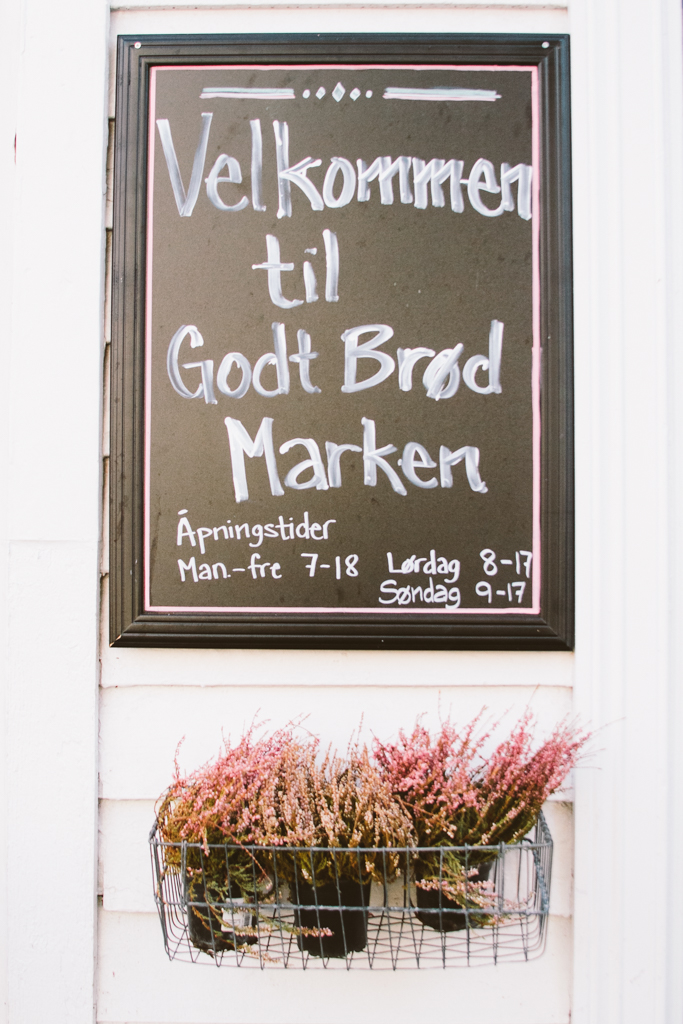 Velkommen
til
Godt Brød
Marken
Åpningstider
Man.-fre 7-18 Lørdag 8-17
Søndag 9-17